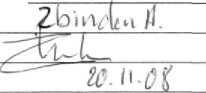 Zbinden A.
20.11.08